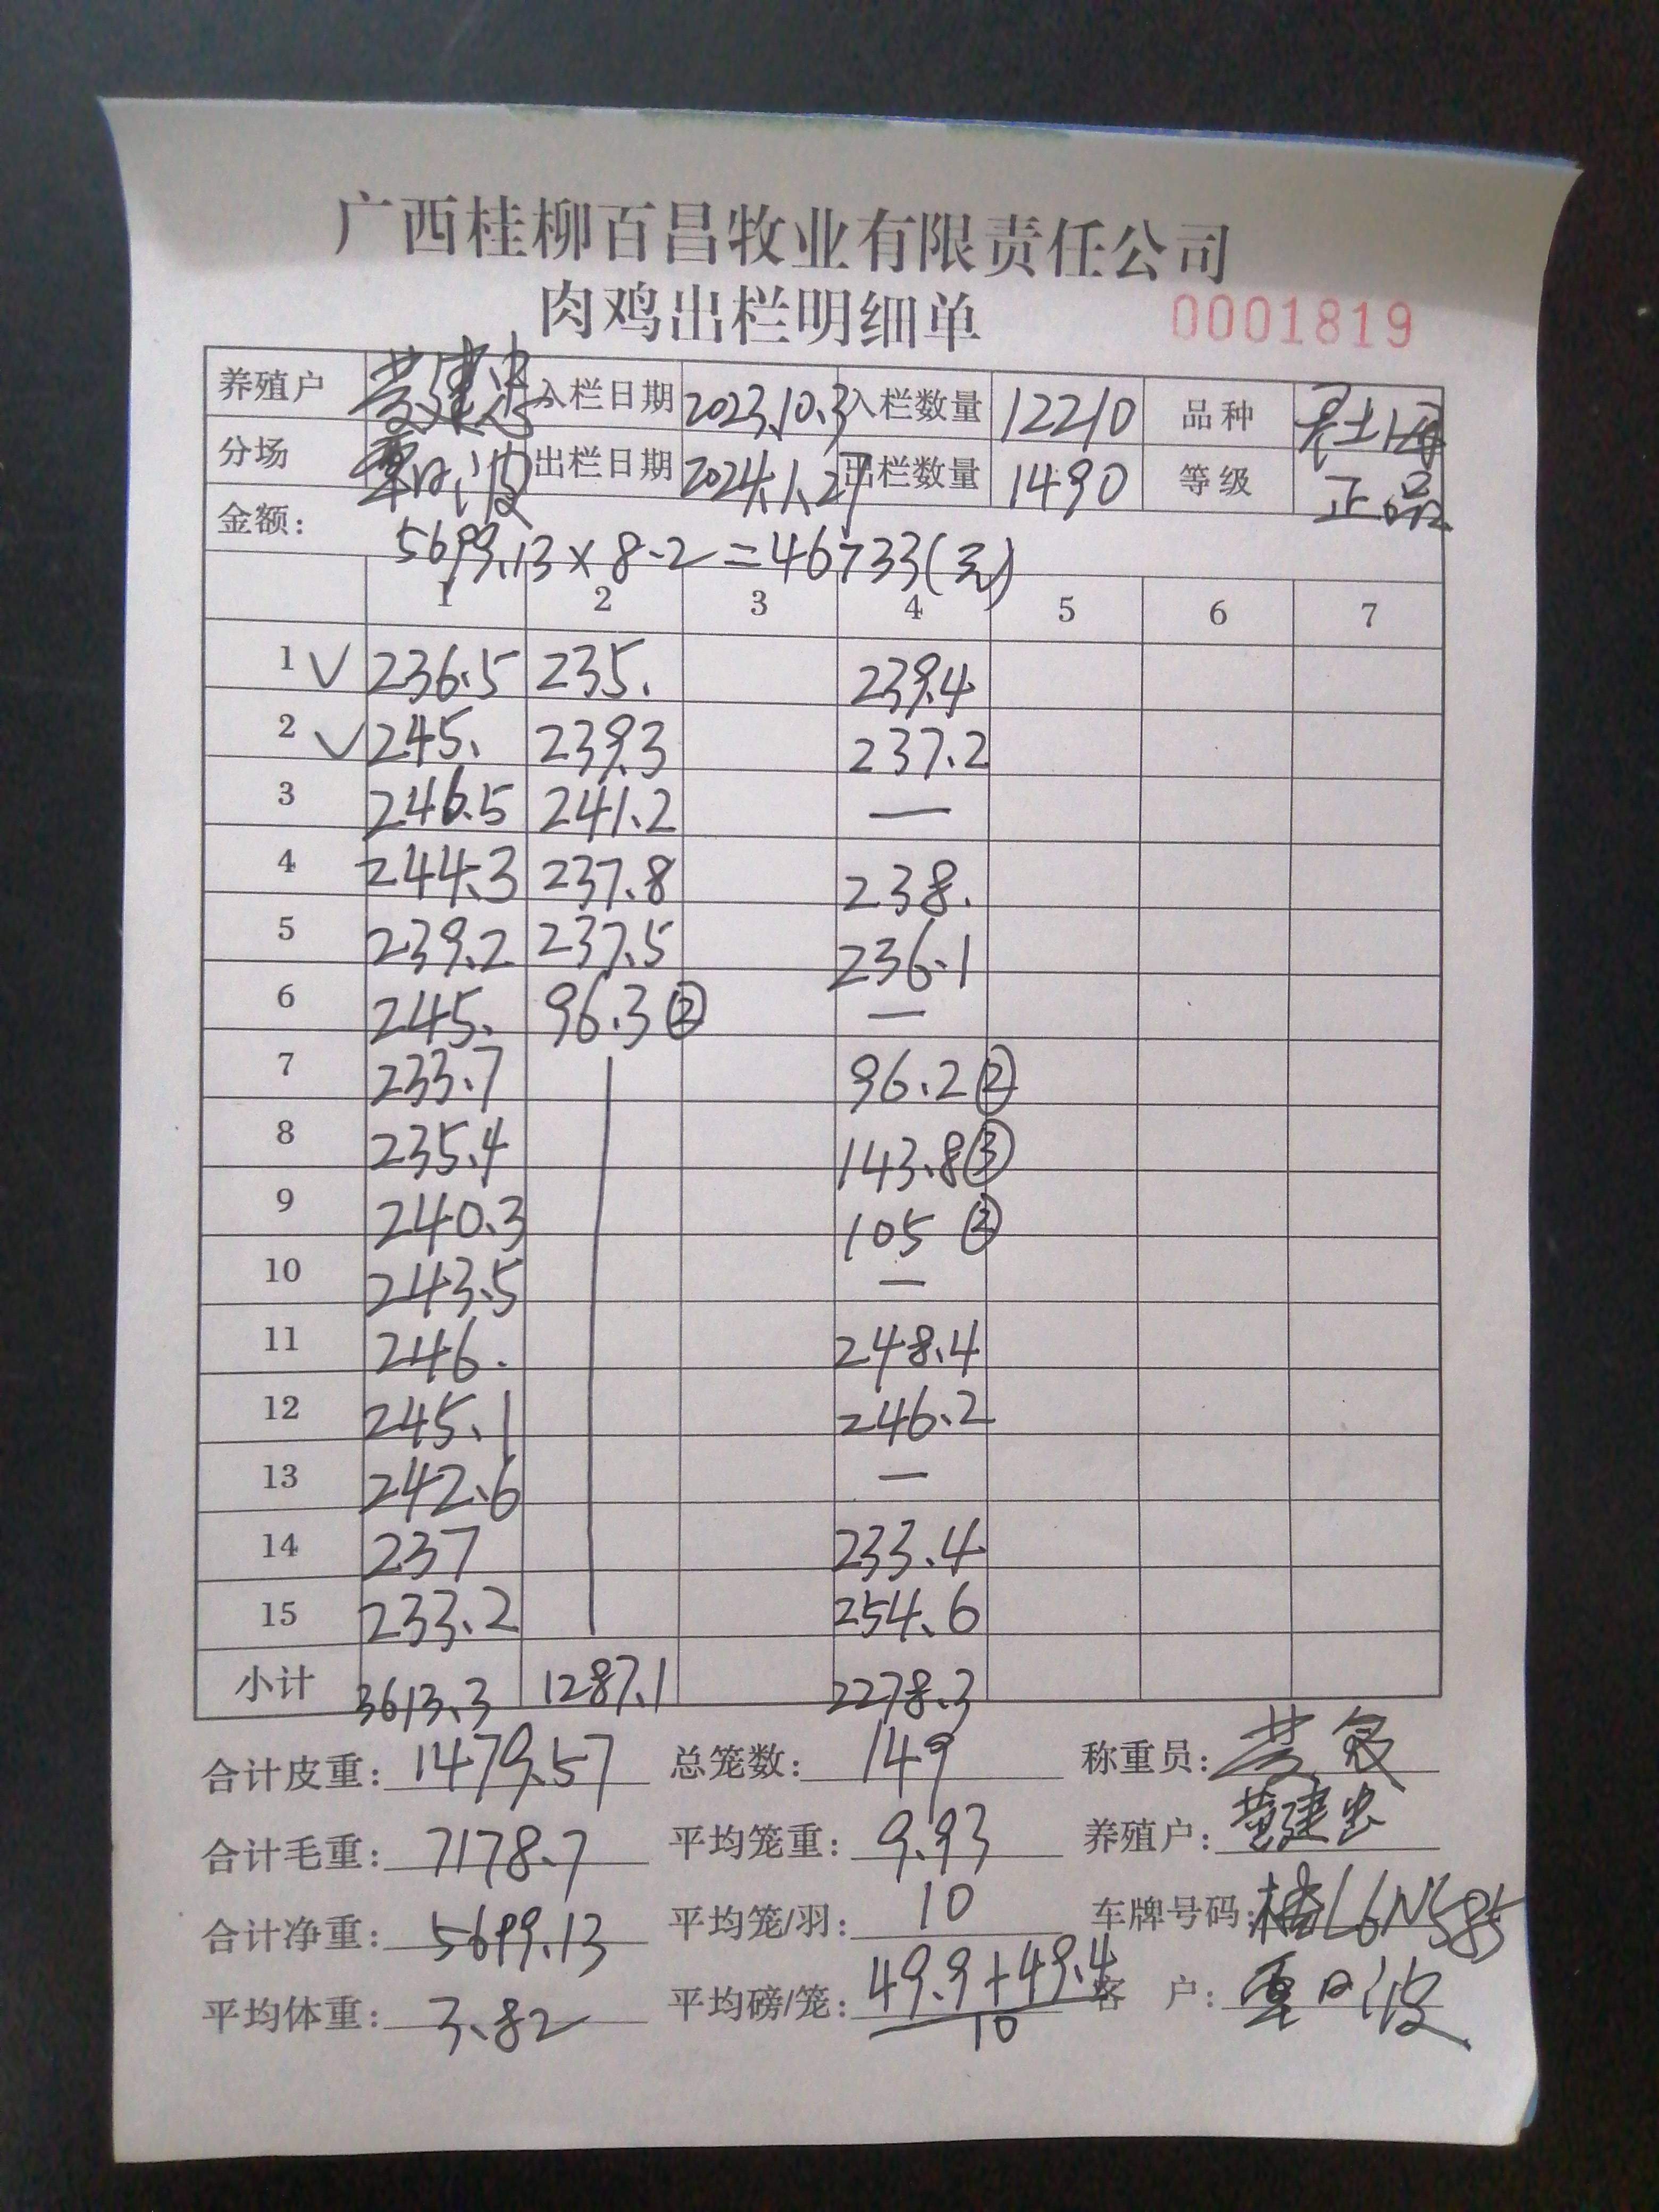 广西桂柳百昌牧业有限责任公司
肉鸡出栏明细单 0001819
养殖户 黄建忠 入栏日期 2023.10.3 入栏数量 12210 品种
分场 覃日波 出栏日期 2024.1.27 出栏数量 1490 等级 正品
金额: 5699.13×8.2=46733(元)
1 2 3 4 5 6 7
1 √ 236.5 235. 239.4
2 √ 245. 239.3 237.2
3 246.5 241.2 —
4 244.3 237.8 238.
5 239.2 237.5 236.1
6 245. 96.3② —
7 233.7 96.2②
8 235.4 143.8③
9 240.3 105②
10 243.5 —
11 246. 248.4
12 245.1 246.2
13 242.6 —
14 237 233.4
15 233.2 254.6
小计 3613.3 1287.1 2278.3
合计皮重: 1479.57 总笼数: 149 称重员:
合计毛重: 7178.7 平均笼重: 9.93 养殖户: 黄建忠
合计净重: 5699.13 平均笼/羽: 10 车牌号码: 桂L6N585
平均体重: 3.82 平均磅/笼: 49.9+49.4 客 户: 覃日波
10